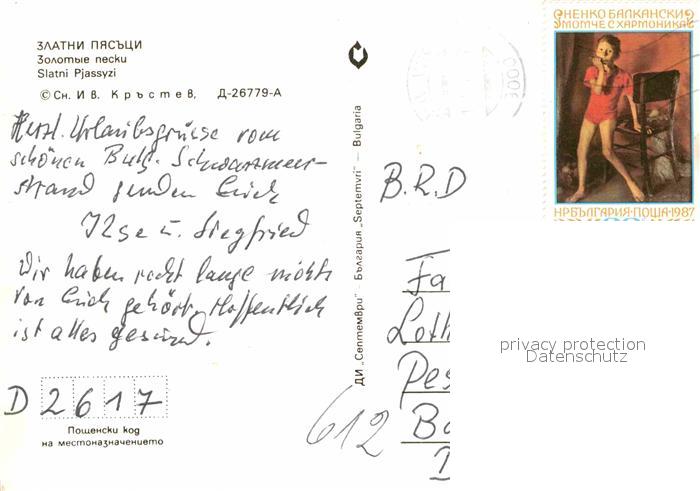 ЗЛАТНИ ПЯСЪЦИ
Золотые пески
Slatni Pjassyzi
© Сн. Ив. Кръстев, Д-26779-А
Herzl. Urlaubsgrüsse vom
schönen Bulg. Schwarzmeer-
strand senden Euch
Ilse u. Siegfried
Wir haben recht lange nichts
von Euch gehört. Hoffentlich
ist alles gesund.
D 2617
Пощенски код
на местоназначението
ДИ „Септември" — България „Septemvri" — Bulgaria
НЕНКО БАЛКАНСКИ
МОМЧЕ С ХАРМОНИКА
НР БЪЛГАРИЯ·ПОЩА·1987
B.R.D
Fa
Loth
Pes
Ba
612
privacy protection
Datenschutz